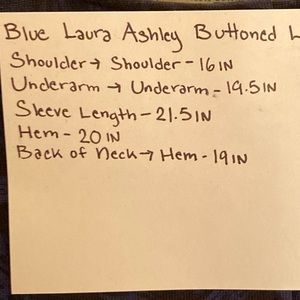 Blue Laura Ashley Buttoned L
Shoulder → Shoulder - 16 IN
Underarm → Underarm - 19.5 IN
Sleeve Length - 21.5 IN
Hem - 20 IN
Back of Neck → Hem - 19 IN